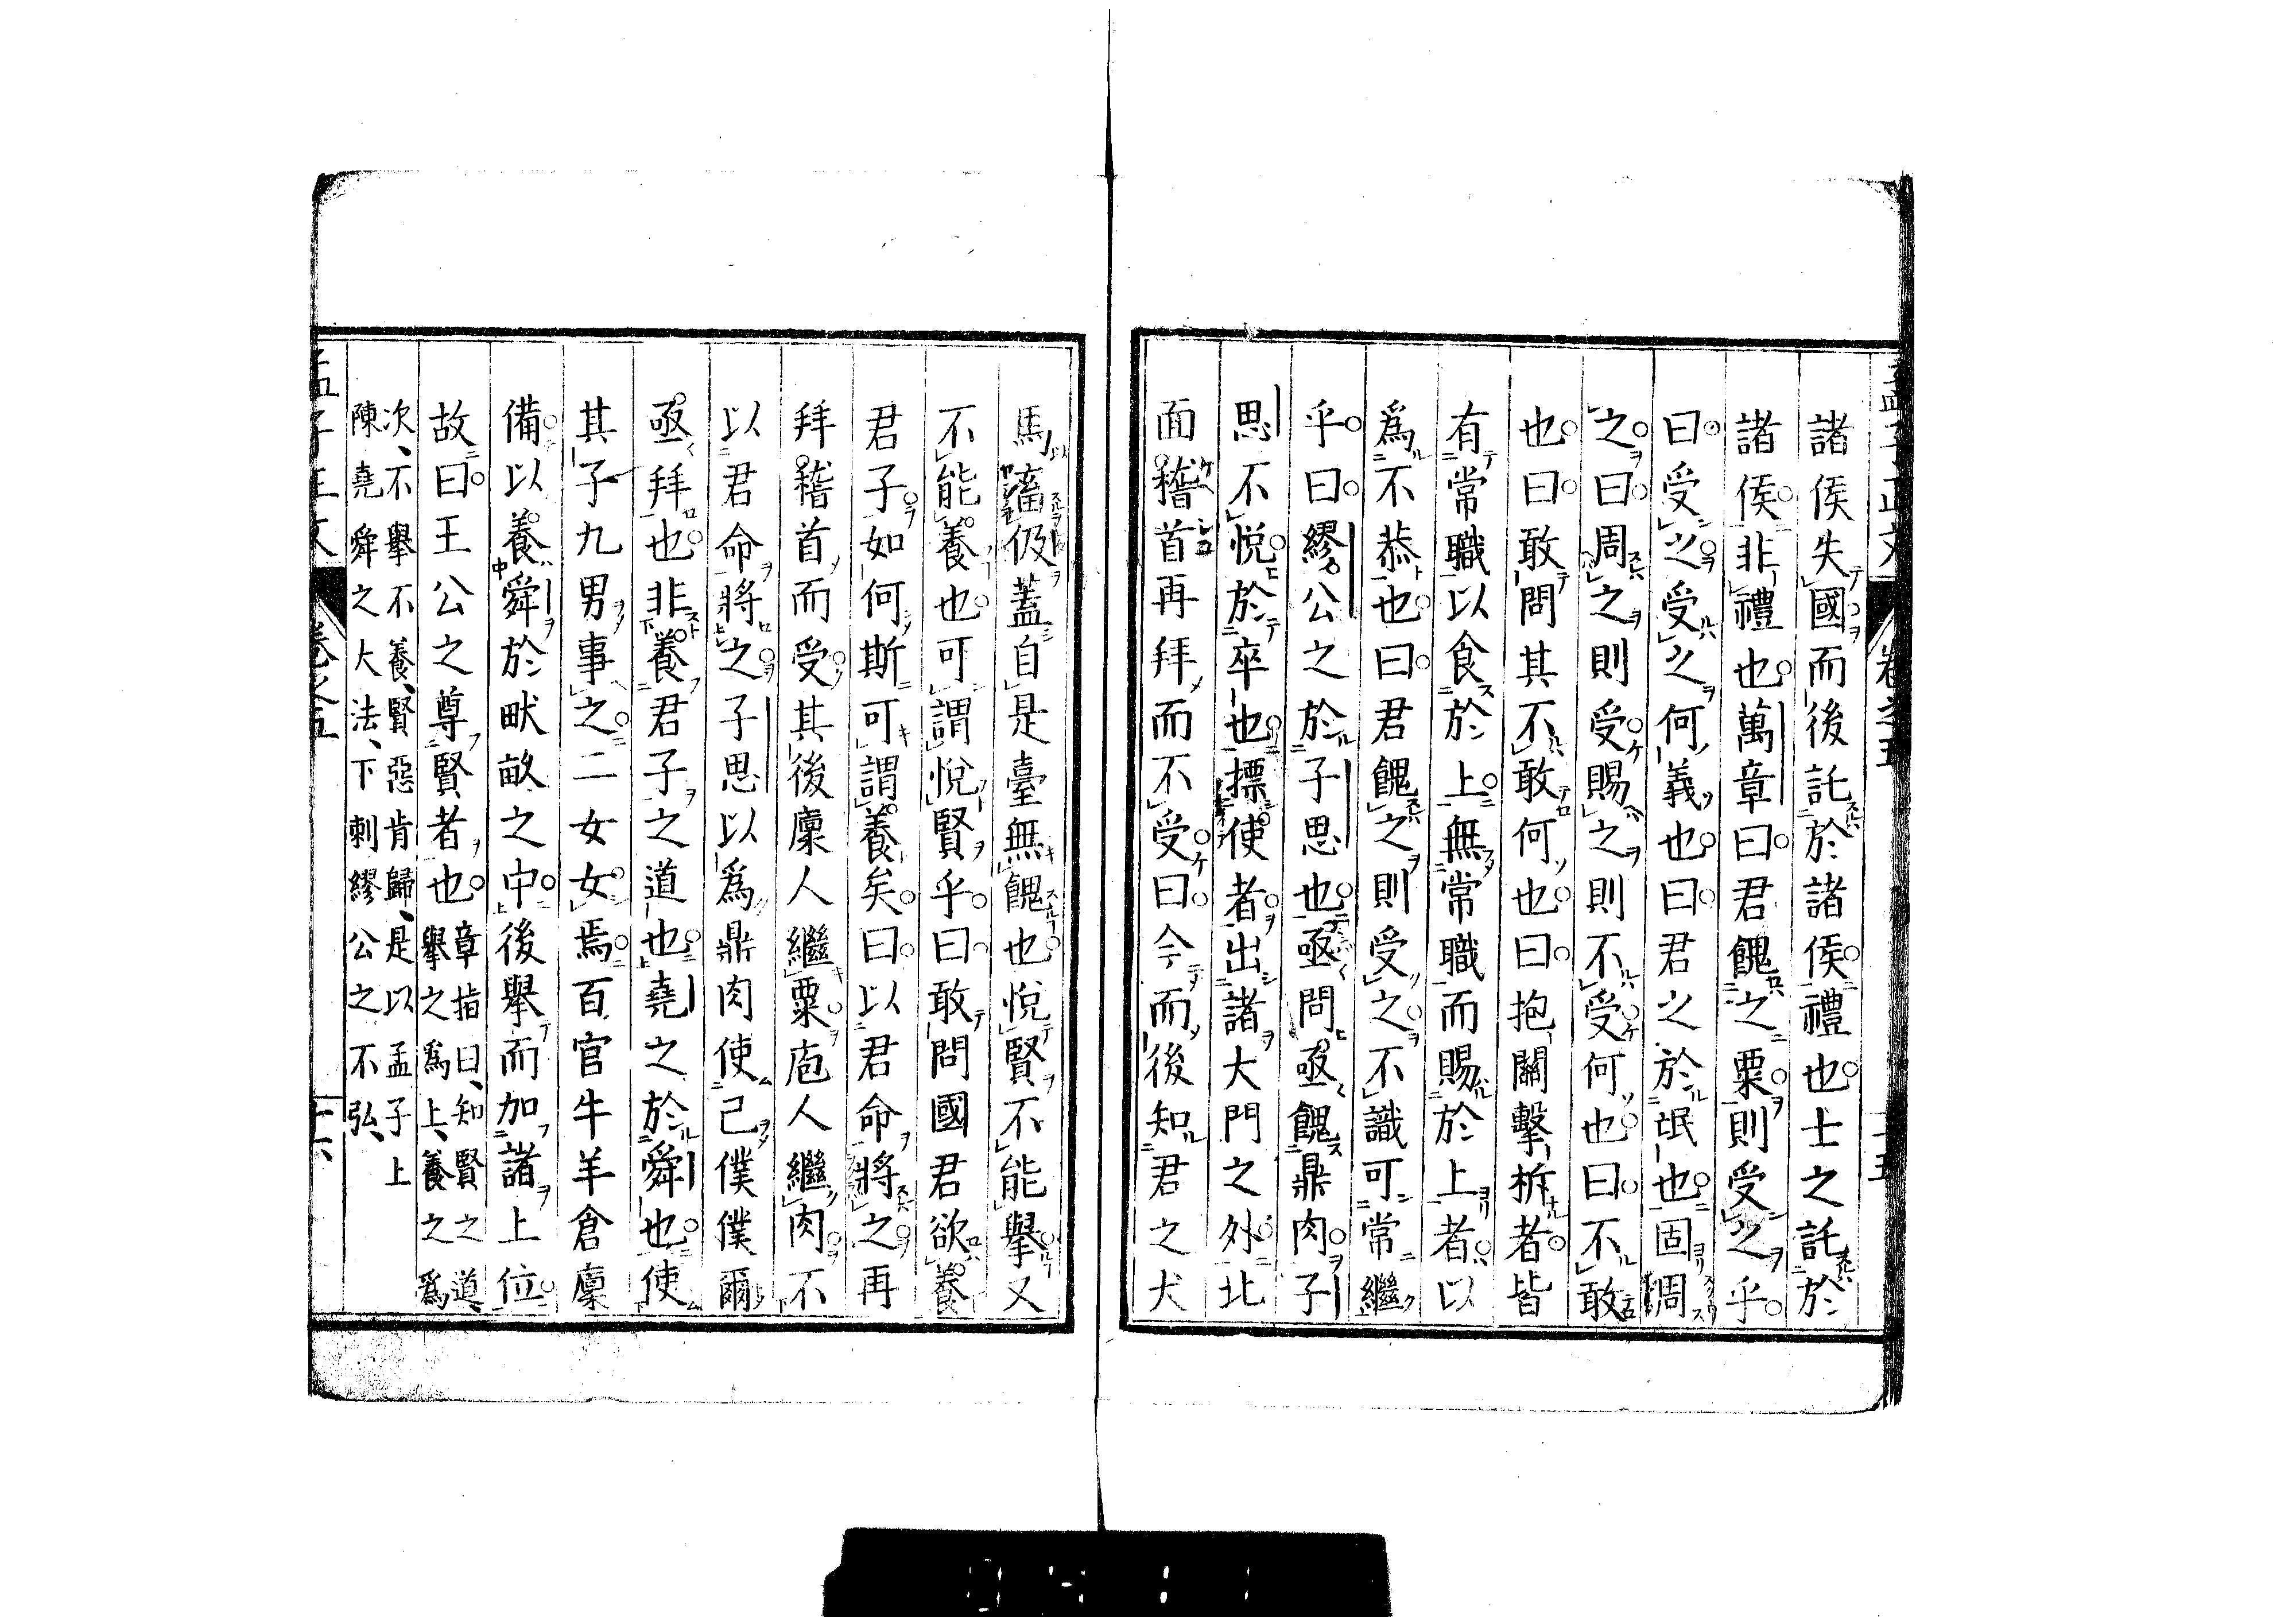 孟子正文 卷之五 十五
諸侯失國而後託於諸侯禮也士之託於
諸侯非禮也萬章曰君餽之粟則受之乎
曰受之受之何義也曰君之於氓也固周
之曰周之則受賜之則不受何也曰不敢
也曰敢問其不敢何也曰抱關擊柝者皆
有常職以食於上無常職而賜於上者以
爲不恭也曰君餽之則受之不識可常繼
乎曰繆公之於子思也亟問亟餽鼎肉子
思不悅於卒也摽使者出諸大門之外北
面稽首再拜而不受曰今而後知君之犬
馬畜伋蓋自是臺無餽也悅賢不能舉又
不能養也可謂悅賢乎曰敢問國君欲養
君子如何斯可謂養矣曰以君命將之再
拜稽首而受其後廩人繼粟庖人繼肉不
以君命將之子思以爲鼎肉使己僕僕爾
亟拜也非養君子之道也堯之於舜也使
其子九男事之二女女焉百官牛羊倉廩
備以養舜於畎畝之中後舉而加諸上位
故曰王公之尊賢者也
章指曰、知賢之道、
舉之爲上、養之爲
次、不舉不養、賢惡肯歸、是以孟子上
陳堯舜之大法、下刺繆公之不弘、
孟子正文 卷之五 十六